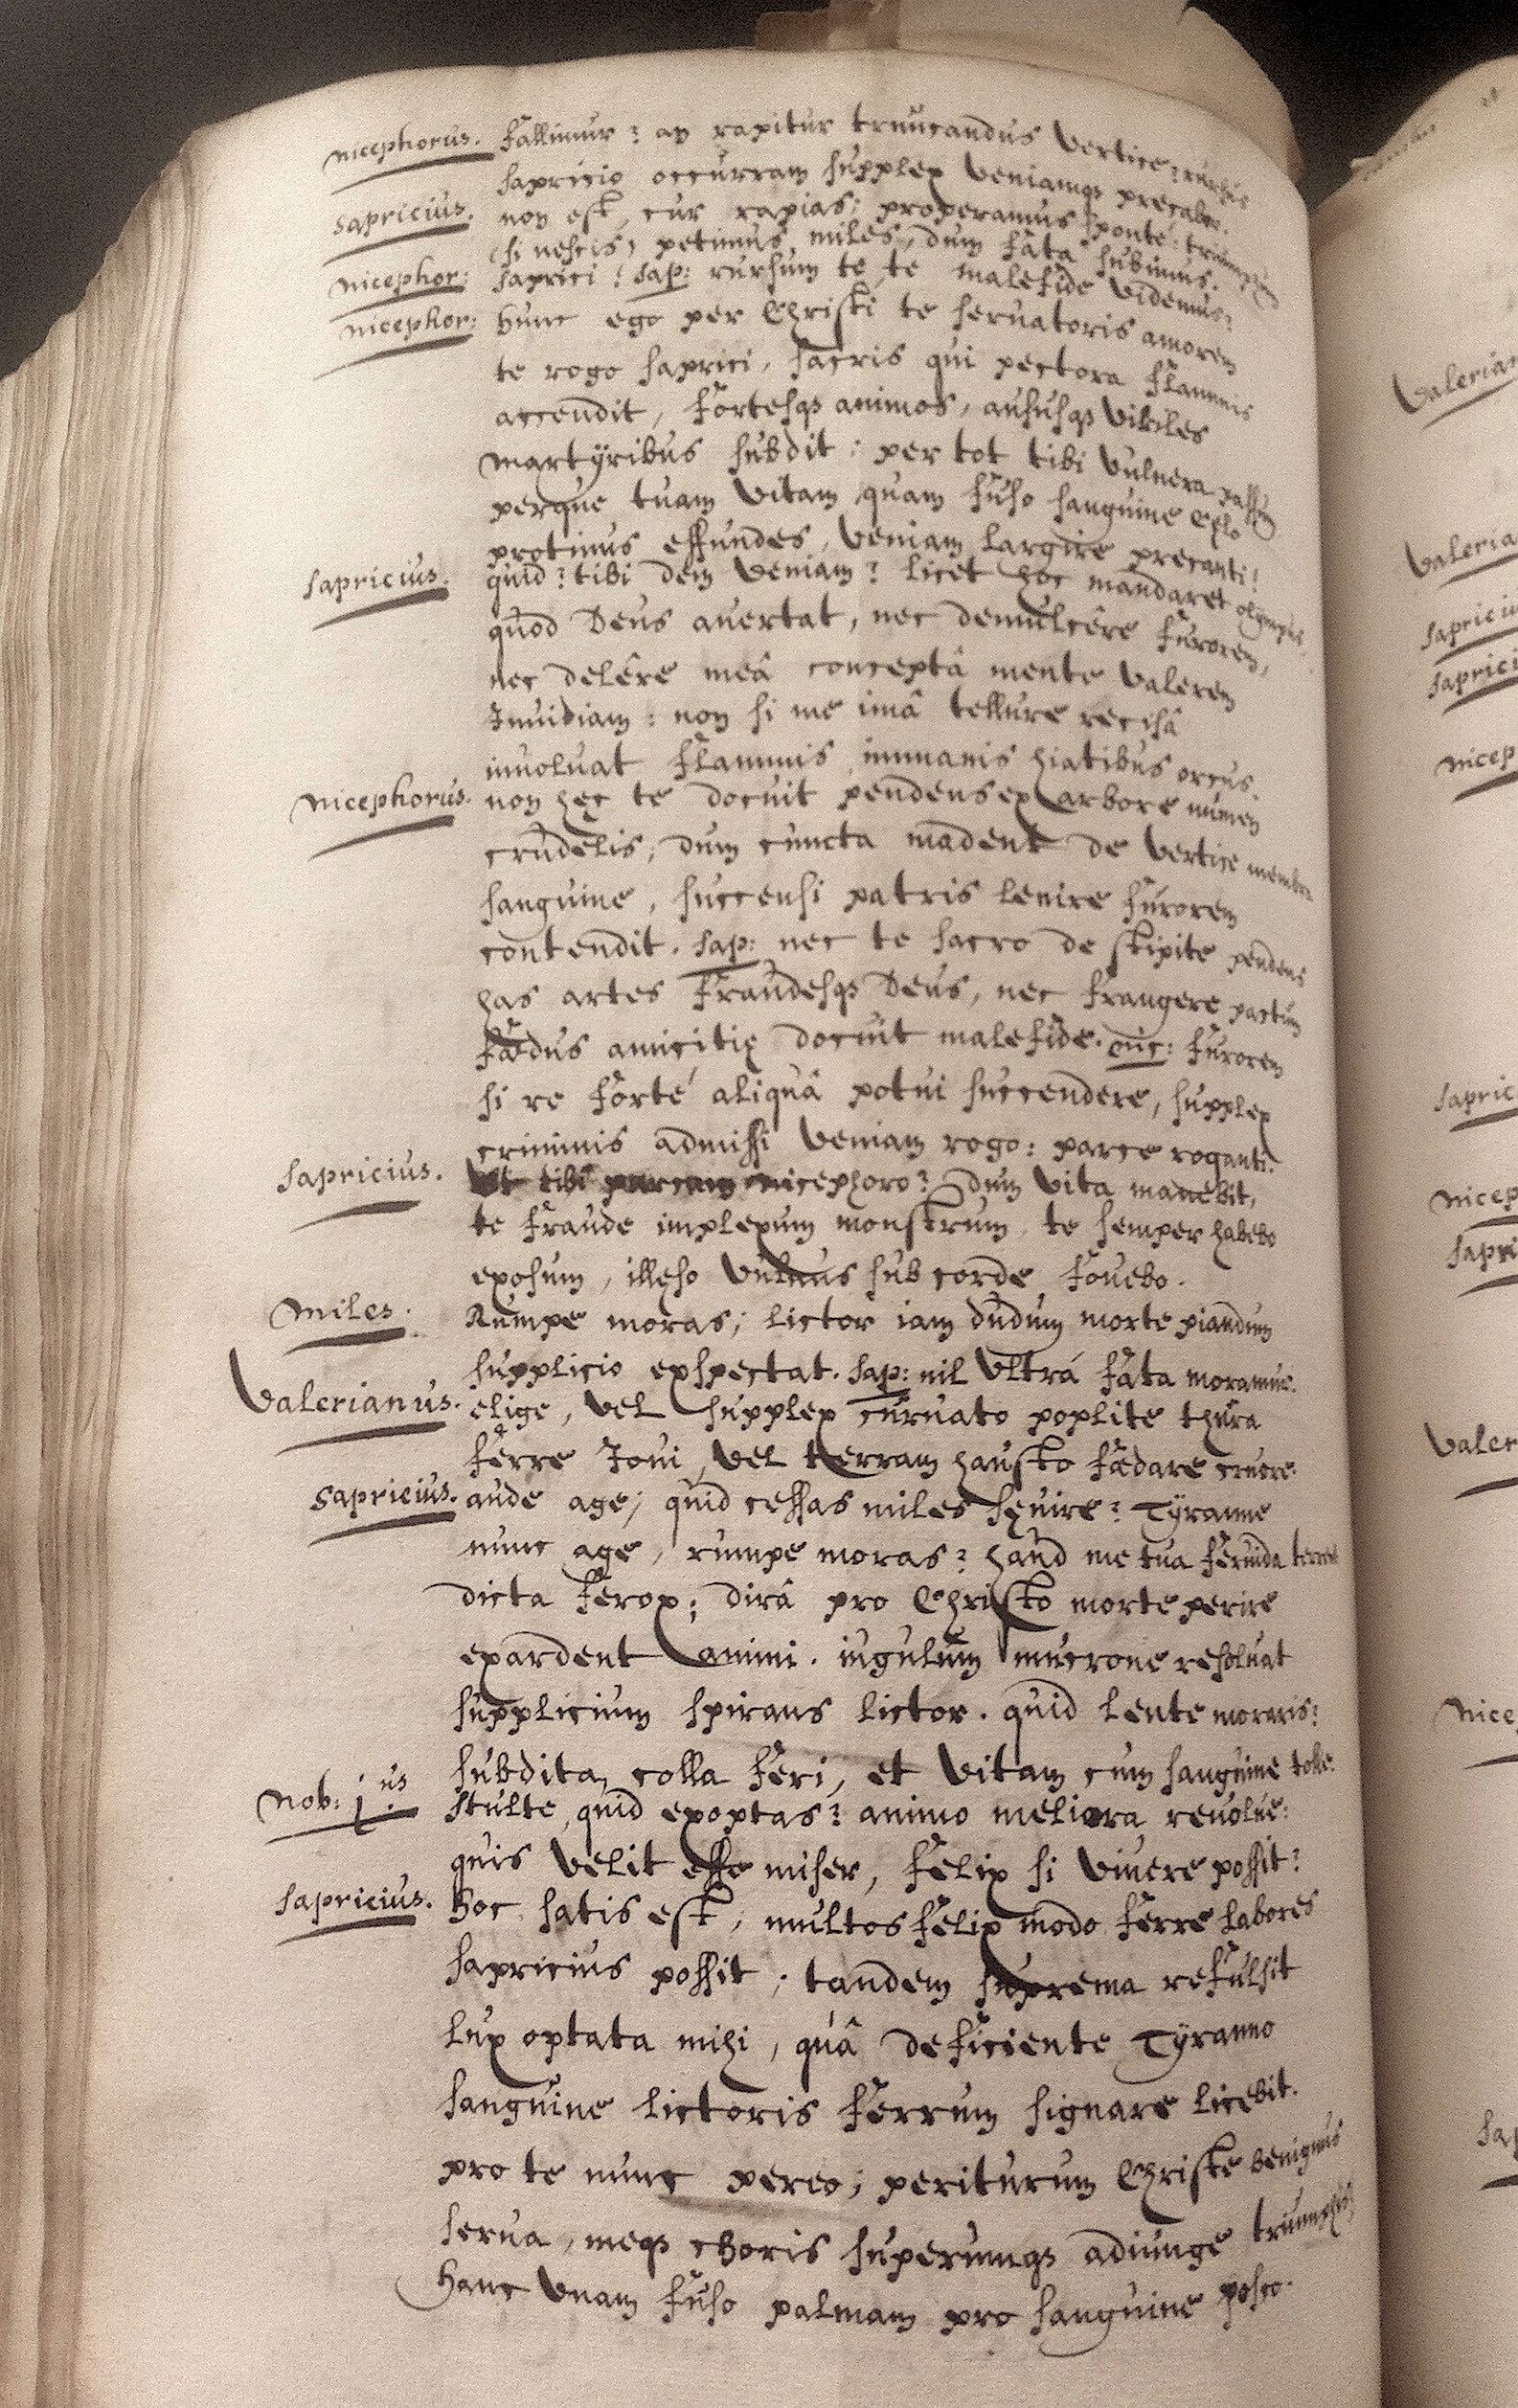 nicephorus. Fallimur? an rapitur truncandus vertice? rursus
Sapricio occurram supplex veniamq3 precabor.
sapricius. non est, cur rapias; properamus sponte: triumphum
(si nescis) petimus, miles, dum fata subimus.
nicephor: saprici! Sap: rursum te, te malefide videmus?
nicephor: Hunc ego per Christi te servatoris amorem
te rogo saprici, sacris qui pectora flammis
accendit, fortesq3 animos, aususq3 viriles
martÿribus subdit: per tot tibi vulnera passum
perque tuam vitam, quam fuso sanguine cælo
protinus effundes, veniam largire precanti!
Sapricius. quid? tibi dem veniam? licet hoc mandaret olympus,
quod Deus avertat, nec demulcêre furorem,
nec delêre meâ conceptâ mente valerem
Invidiam: non si me imâ tellure recisâ
involuat flammis, immanis hiatibus orcus.
nicephorus. non hęc te docuit pendens ex arbore numen
crudelis, dum cuncta madent de vertice membra
sanguine, succensi patris lenire furorem
contendit. Sap: nec te sacro de stipite pendens
has artes fraudesq3 Deus, nec frangere pactum
fædus amicitię docuit malefide. nic: furorem
si re forte aliquâ potui succendere, supplex
criminis admissi veniam rogo: parce roganti.
Sapricius. Ut tibi parcam nicephoro? dum vita manebit,
te fraude implexum monstrum, te semper habebo
exosum, illęso vulnus sub corde fovebo.
Miles. Rumpe moras; lictor iam dudum morte piandum
supplicio exspectat. Sap: nil ultrá fata moramur.
Valerianus. elige, vel supplex curuato poplite thura
ferre Joui, vel terram hausto fædare cruore.
Sapricius. aude age; quid cessas miles sęuire? Tÿranne
nunc age, rumpe moras? haud me tua feruida terrent
dicta ferox; dirâ pro Christo morte perire
exardent animi. iugulum mucrone resoluat
supplicium spirans lictor. quid lente moraris?
subdita colla feri, et vitam cum sanguine tolle.
Nob: 1us Stulte, quid exoptas? animo meliora reuolue:
quis velit esse miser, felix si viuere possit?
Sapricius. Hoc satis est, multos felix modo ferre labores
Sapricius possit; tandem suprema refulsit
lux optata mihi, quâ deficiente Tÿranno
sanguine lictoris ferrum signare licebit.
pro te nunc pereo; periturum Christe benignus
serua, meq3 choris superumq3 adiunge triumphis;
Hanc unam fuso palmam pro sanguine posco.
Valerian
Valeria
Sapriciu
Sapric
nicep
Sapric
nicep
Sapr
Valer
nice
Sap